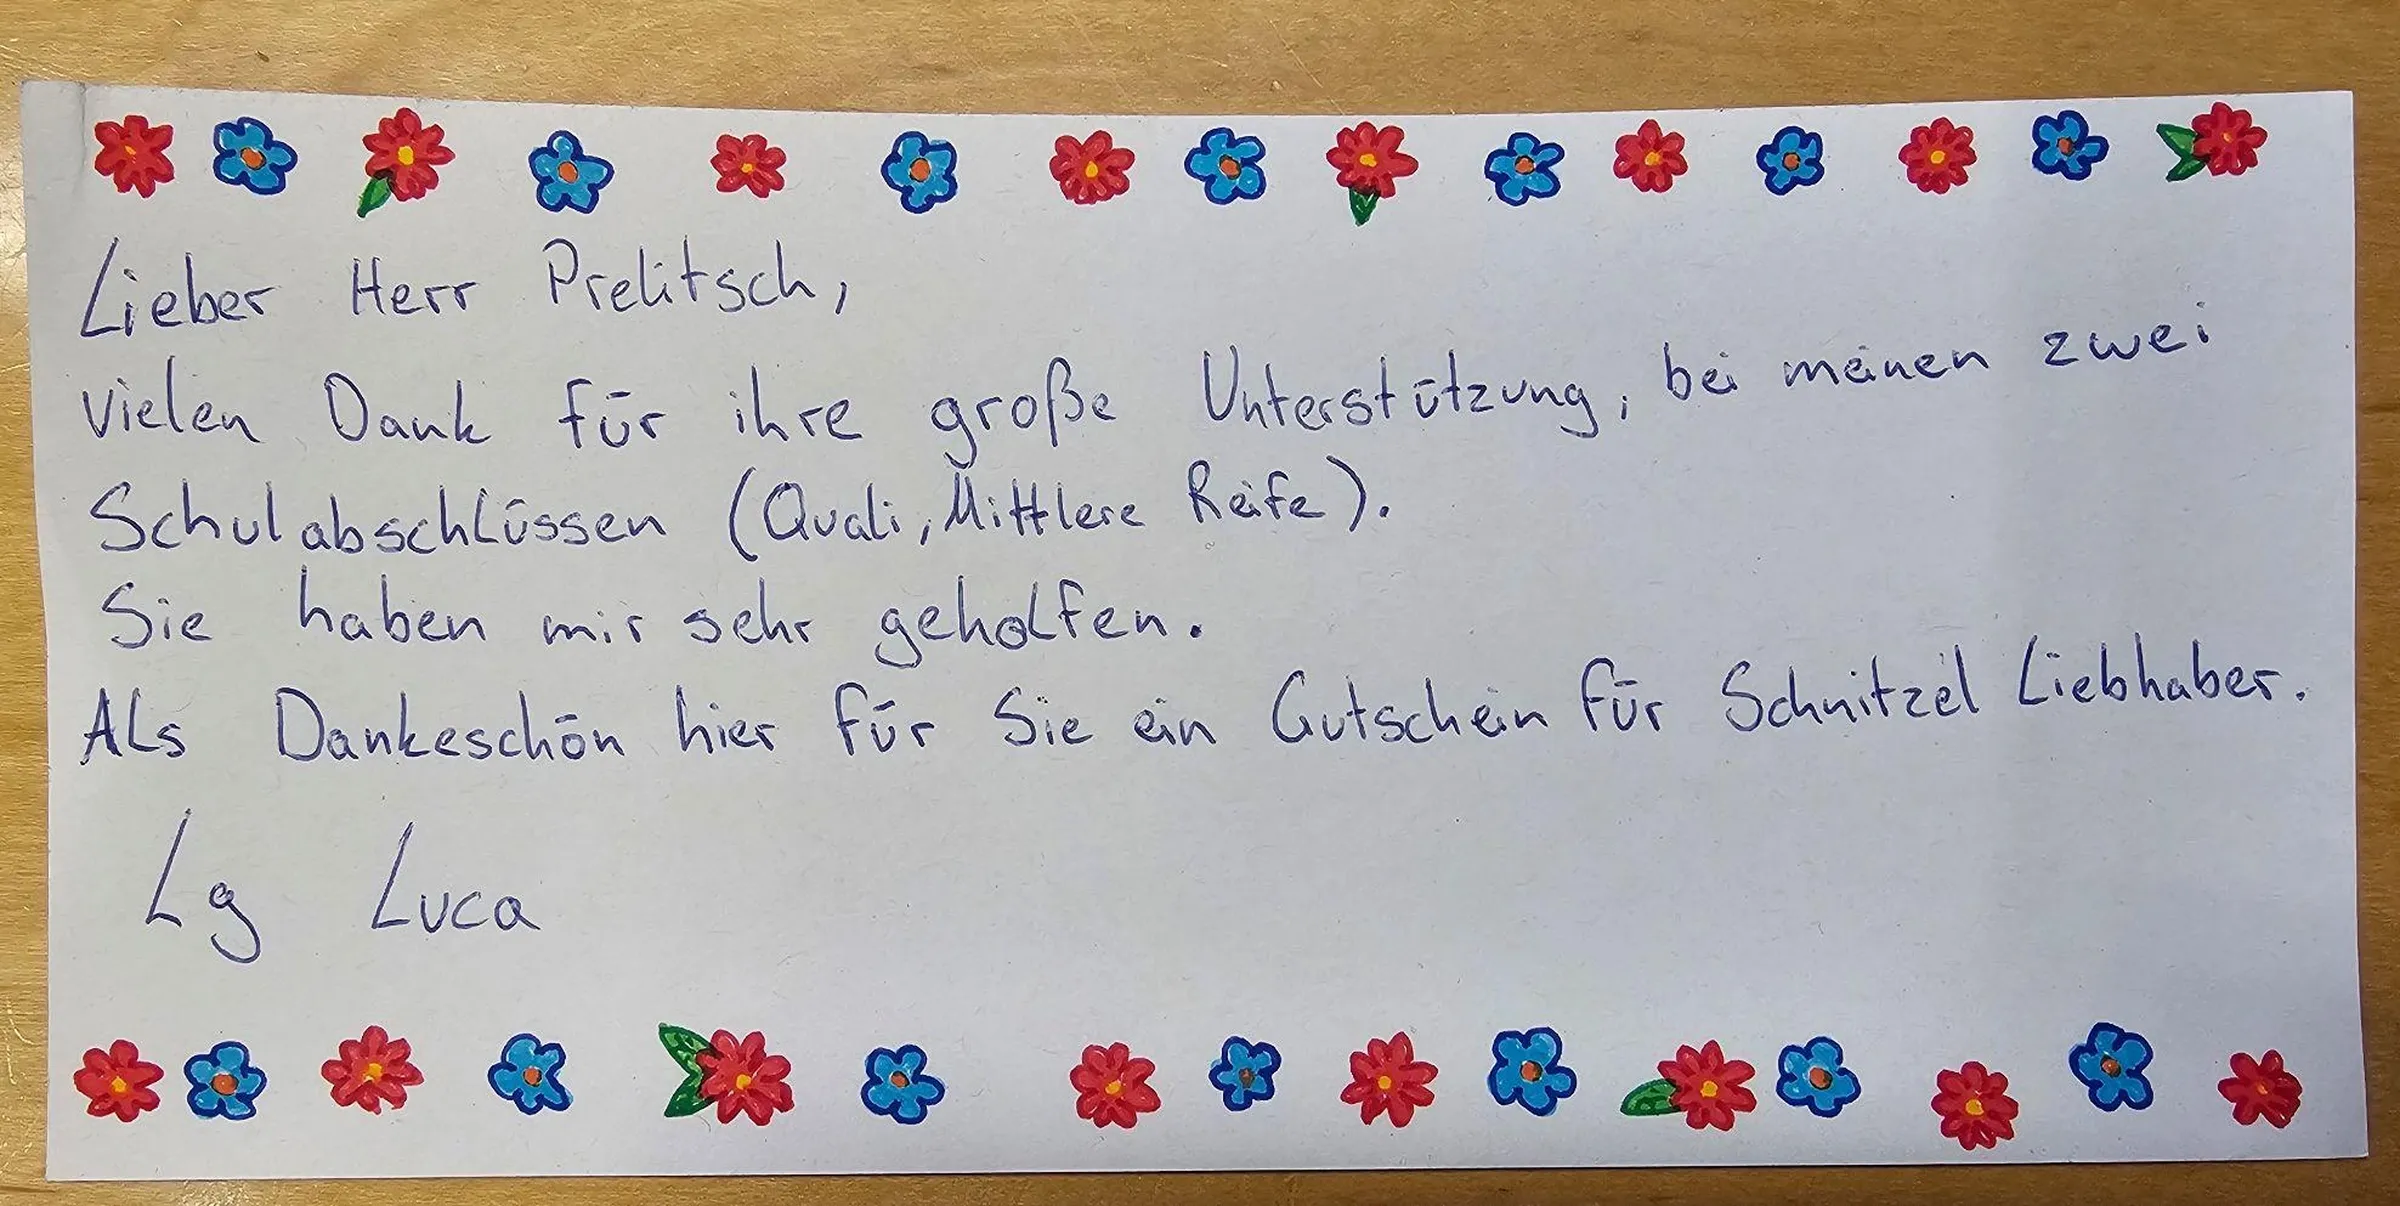 Lieber Herr Prelitsch,
vielen Dank für ihre große Unterstützung, bei meinen zwei
Schulabschlüssen (Quali, Mittlere Reife).
Sie haben mir sehr geholfen.
Als Dankeschön hier für Sie ein Gutschein für Schnitzel Liebhaber.
Lg Luca